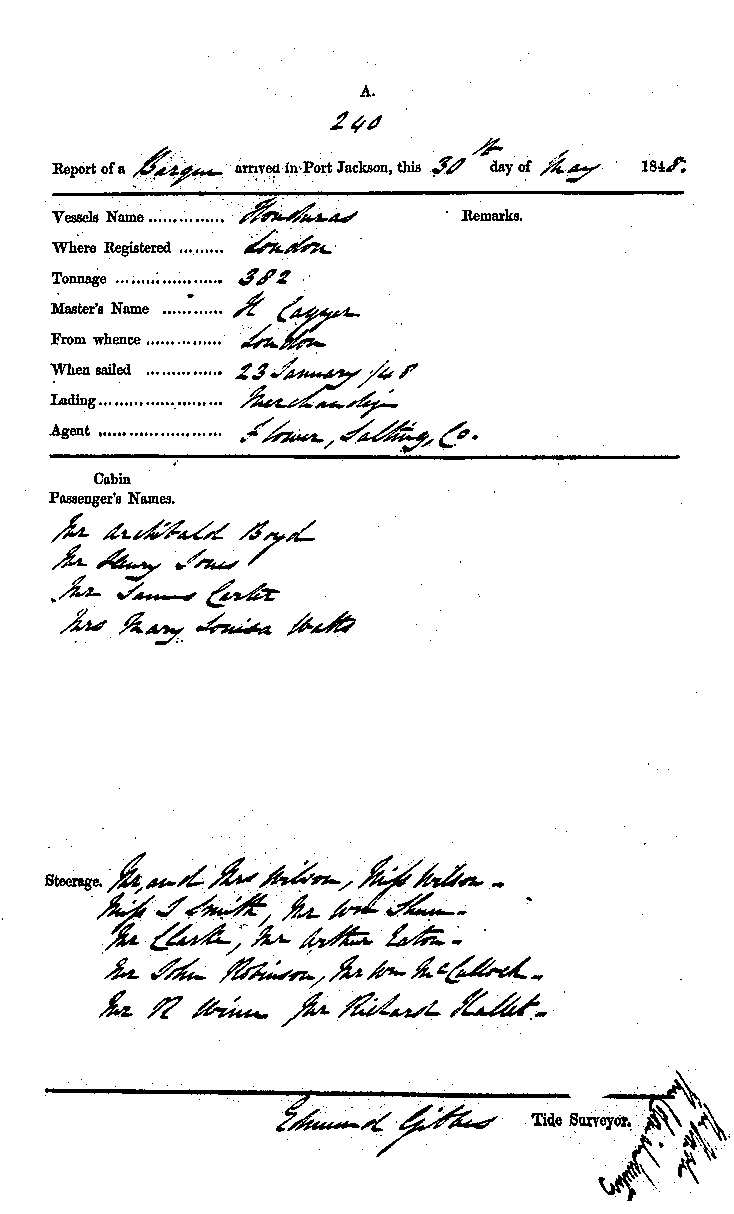 A.
240
Report of a Barque arrived in Port Jackson, this 30th day of May 1848.
Vessels Name ............... Honduras Remarks.
Where Registered ......... London
Tonnage ..................... 382
Master's Name ............ H
From whence ............... London
When sailed ............... 23 January /48
Lading........................ Merchandize
Agent ........................ Flower, Salting, Co.
Cabin
Passenger's Names.
Mr Archibald Boyd
Mr Henry Jones
Mr James Carter
Mrs Mary Louisa Watts
Steerage. Mr, and Mrs Wilson, Miss Wilson -
Miss J Smith, Mr Wm -
Mr Clarke, Mr Arthur Eaton -
Mr John Robinson, Mr Wm McCulloch -
Mr R Winn Mr Richard Hallet -
Edmund Gibbes Tide Surveyor.